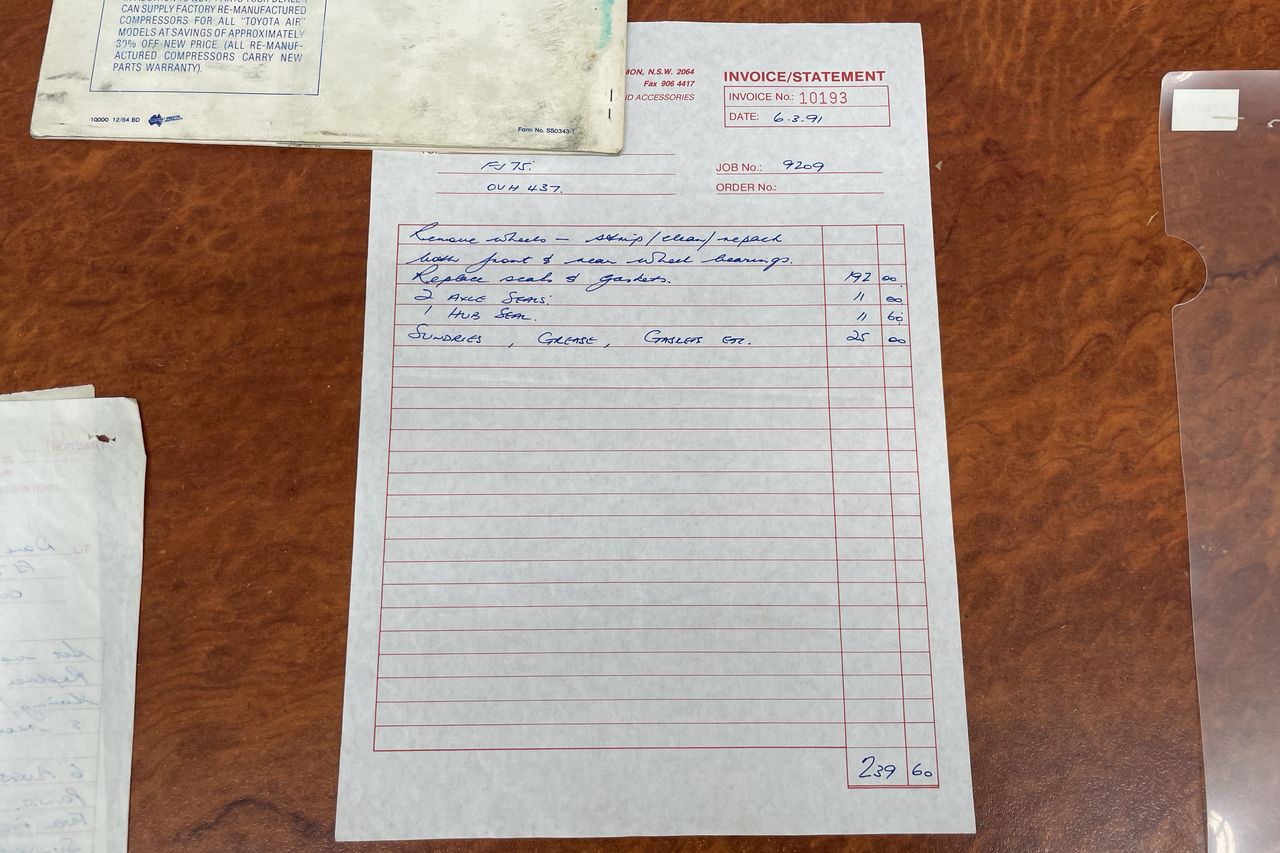 CAN SUPPLY FACTORY RE-MANUFACTURED
COMPRESSORS FOR ALL "TOYOTA AIR"
MODELS AT SAVINGS OF APPROXIMATELY
30% OFF NEW PRICE. (ALL RE-MANUF-
ACTURED COMPRESSORS CARRY NEW
PARTS WARRANTY).
10000 12/84 BD
Form No. SS0343-1
MON, N.S.W. 2064
Fax 906 4417
ND ACCESSORIES
INVOICE/STATEMENT
INVOICE No.: 10193
DATE: 6.3.91
FJ 75.
OVH 437.
JOB No.: 9209
ORDER No.:
Remove wheels — strip/clean/repack
both front & rear wheel bearings.
Replace seals & gaskets. 192 00
2 AXLE SEALS. 11 00
1 HUB SEAL. 11 60
SUNDRIES, GREASE, GASKETS ETC. 25 00
239 60
TO